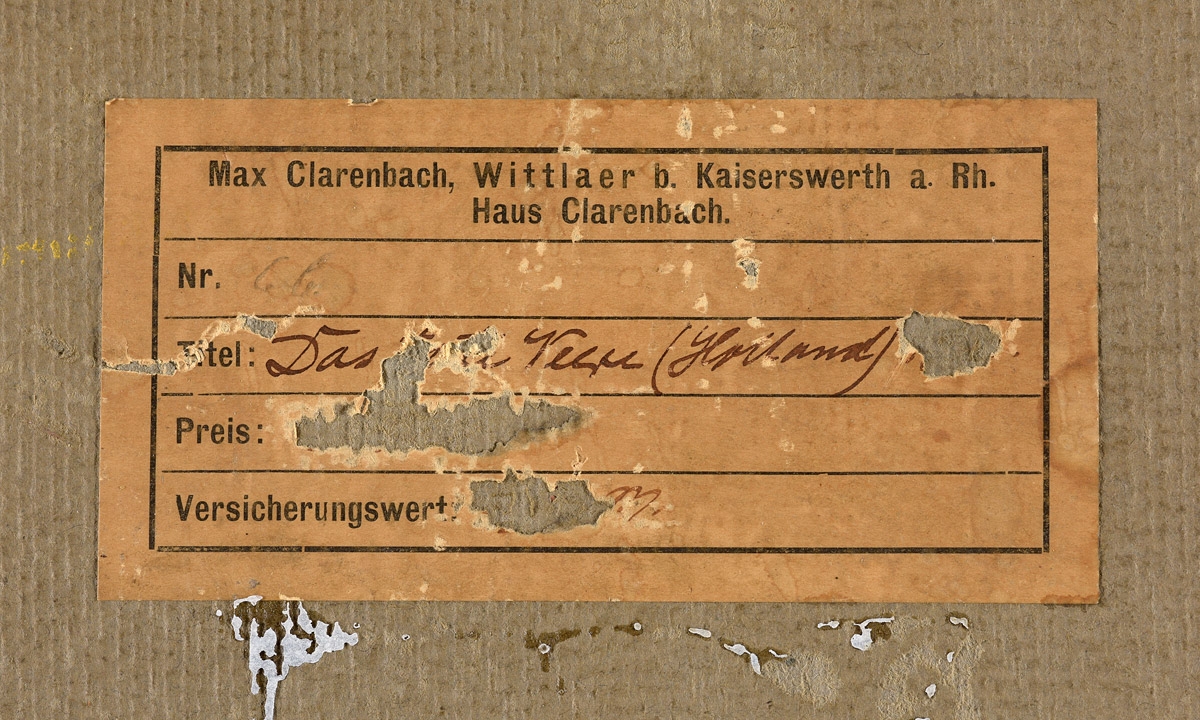 Max Clarenbach, Wittlaer b. Kaiserswerth a. Rh.
Haus Clarenbach.
Nr.
Titel: Das Veere (Holland)
Preis:
Versicherungswert. M.